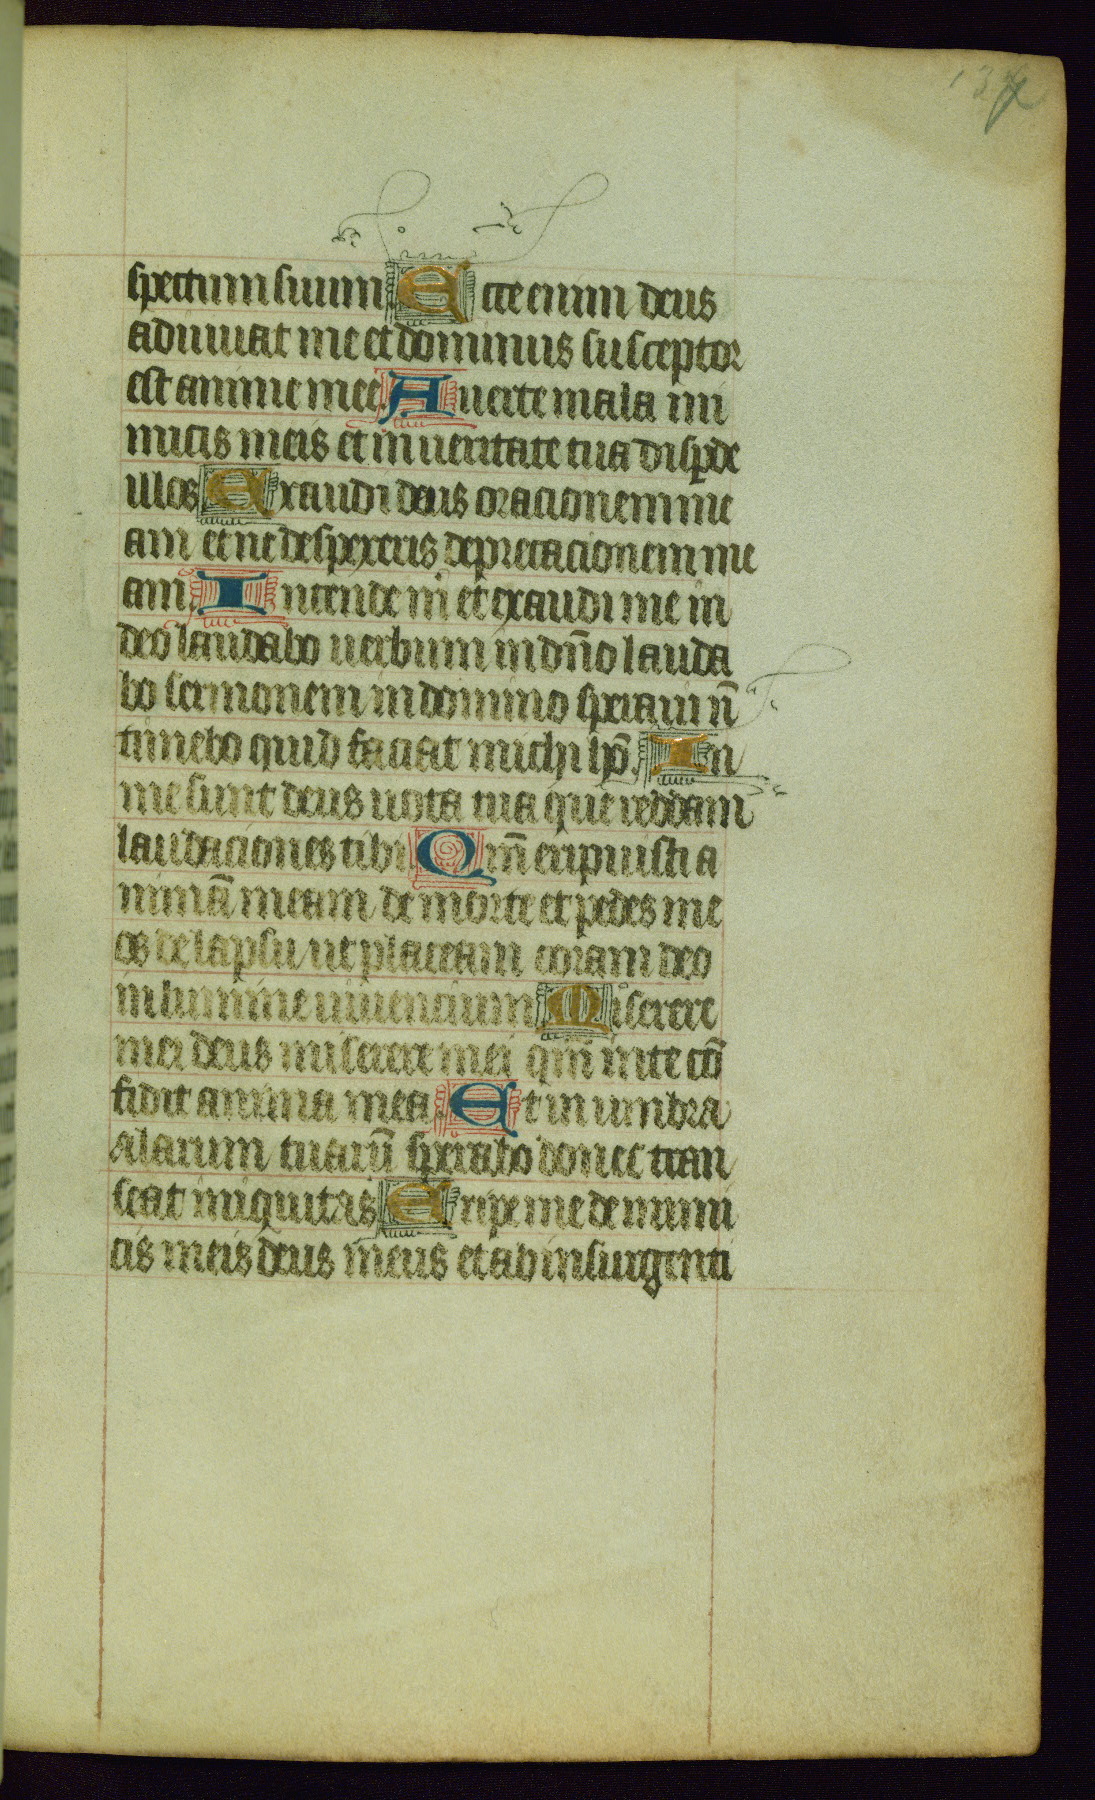 spectum suum Ecce enim deus
adiuuat me et dominus susceptor
est anime mee Auerte mala ini
micis meis et in ueritate tua disperde
illos Exaudi deus oracionem me
am et ne despexeris deprecacionem me
am Intende mi et exaudi me in
deo laudabo uerbum in dño lauda
bo sermonem in domino speraui ñ
timebo quid faciat michi hõ. In
me sunt deus uota tua que reddam
laudaciones tibi Qm̃ eripuisti a
nimã meam de morte et pedes me
os de lapsu ut placeam coram deo
in lumine uiuencium Miserere
mei deus miserere mei qm̃ in te cõ
fidit anima mea Et in umbra
alarum tuarũ sperabo donec tran
seat iniquitas Eripe me de inimi
cis meis deus meus et ab insurgenti